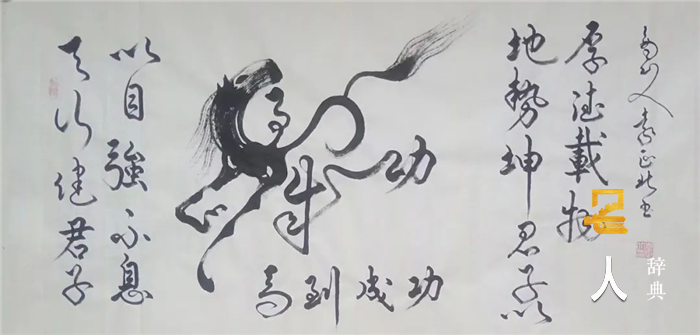 天行健君子
以自強不息
功
馬到成功
地勢坤君子以
厚德載物
人
辞典